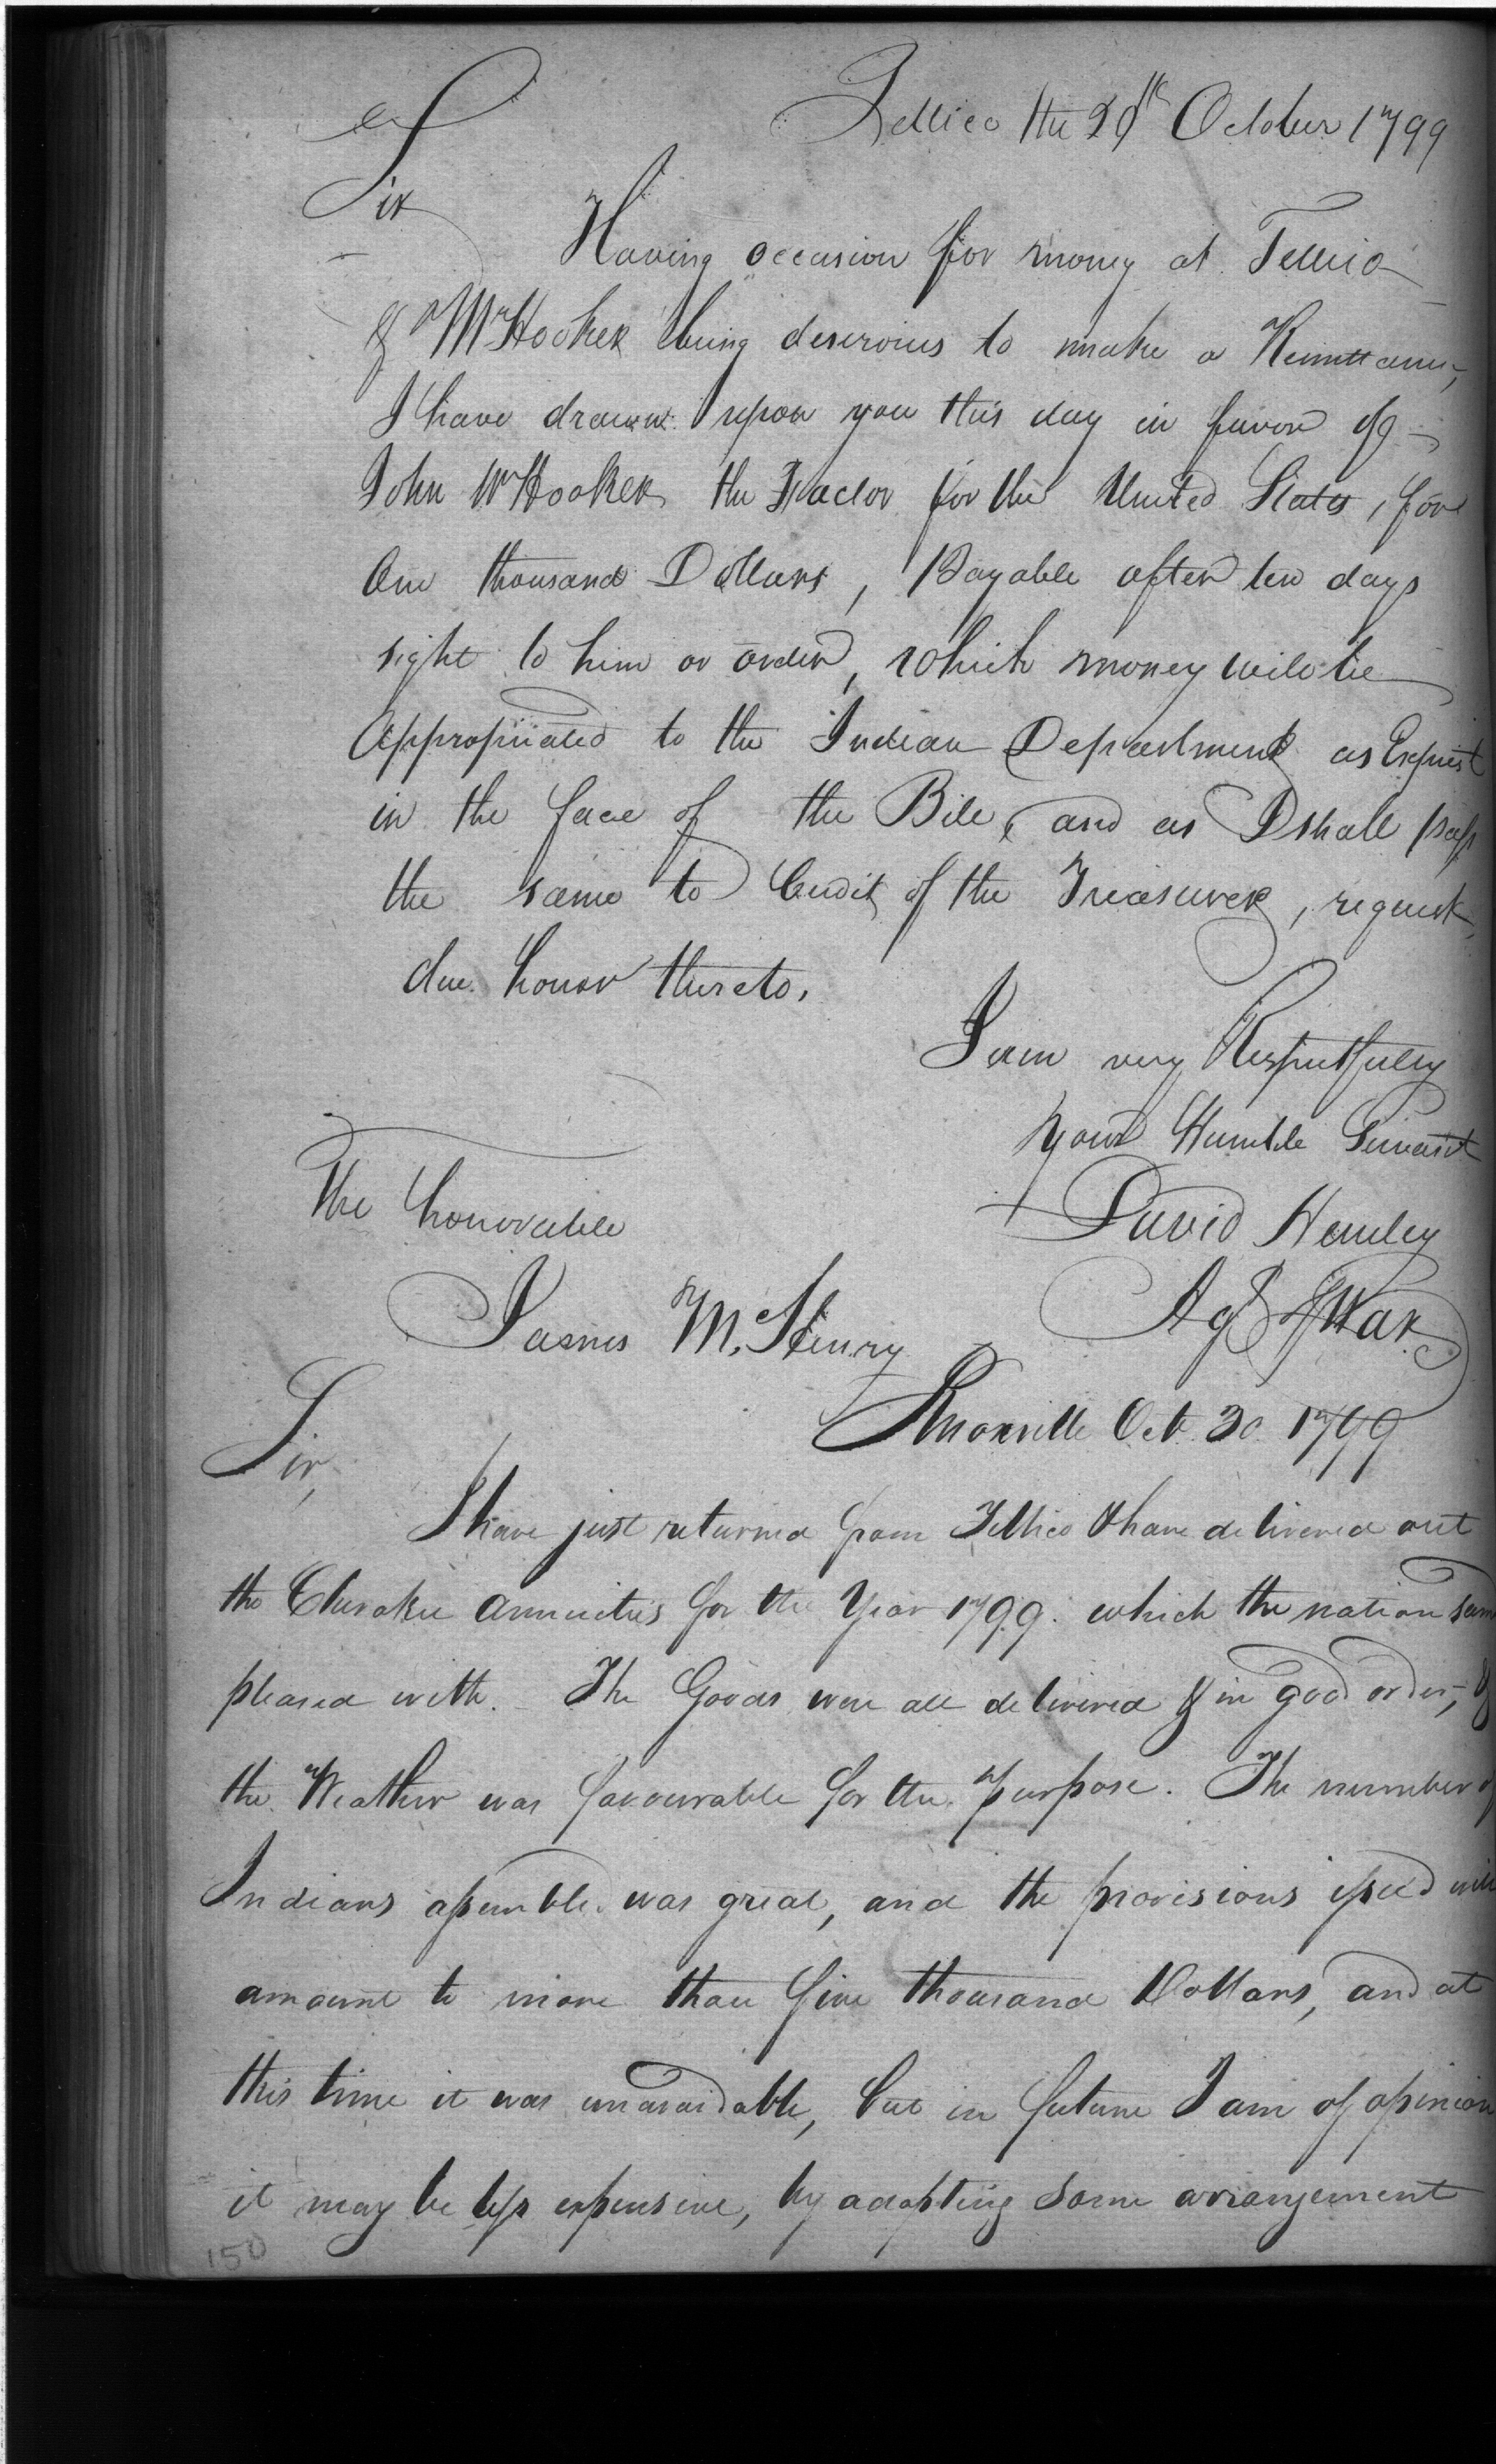 Tellico the 29th October 1799
Sir
Having occasion for money at Tellico
& Mr Hooker being deserous to make a Remittance,
I have drawn upon you this day in favor of
John W Hooker the Factor for the United States, for
One thousand Dollars, Payable after ten days
sight to him or order, which money will be
Appropriated to the Indian Department as Exprest
in the face of the Bill, and as I shall pass
the same to Credit of the Treasurer, request
due honor thereto.
I am very Respectfully
your Humble Servant
David Henley
Agt of War
The honorable
James McHenry
Knoxville Oct. 30 1799
Sir,
I have just returned from Tellico & have delivered out
the Cherokee annuities for the Year 1799. which the nation seem
pleased with. The Goods were all delivered & in good order, &
the Weather was favourable for the purpose. The number of
Indians assembled was great, and the provisions issued will
amount to more than five thousand Dollars, and at
this time it was unavoidable, but in future I am of opinion
it may be less expensive, by adopting some arrangement
150